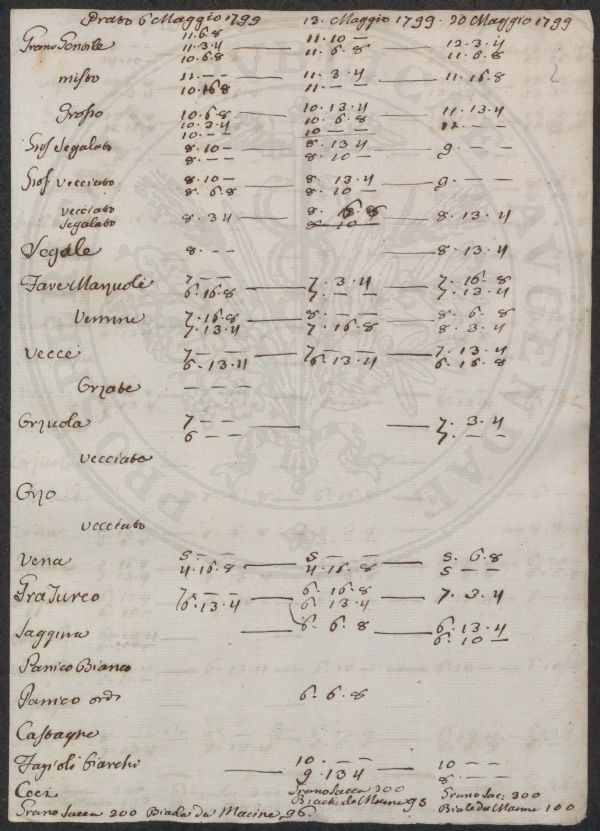 Prato 6 Maggio 1799 13. Maggio 1799 - 20 Maggio 1799
11.6.8 11.10 —
Grano Gentile 11.3.4 — 11.6.8 — 12.3.4
10.6.8 11.6.8
misto 11.— — — 11.3.4 — 11.16.8
10.16.8 11.— —
Grosso 10.6.8 — 10.13.4 — 11.13.4
10.3.4 10.6.8
10.— — 10 — — 11.— —
Gros Segalato 8.10 — — 8.13.4 — 9.— —
8.— — 8.10 —
Gros vecciato 8.10 — — 8.13.4 — 9.— —
8.6.8 8.10 —
vecciato
Segalato 8.3.4 — 8.6.8 — 8.13.4
8 10
Segale 8.— — — 8.13.4
Fave Mazzuole 7 — — — 7.3.4 — 7.16.8
6.16.8 7.— — 7.13.4
Vernine 7.16.8 — 8.— — — 8.6.8
7.13.4 7.16.8 8.3.4
Vecce 7 — — — 7 — — — 7.13.4
6.13.4 6.13.4 6.16.8
Orzate — — —
Orzuola 7 — — — 7.3.4
6 — — 7.— —
vecciato
Orzo
vecciato
Vena 5 — — — 5 — — — 5.6.8
4.16.8 4.16.8 5 — —
GraTurco 7 — — — 6.16.8 — 7.3.4
6.13.4 6.13.4
Saggina — 6.6.8 — 6.13.4
6.10 —
Panico Bianco
Panico ord. 6.6.8
Castagne
Fagioli bianchi 10.— — 10 — —
— 9.13.4 — 8.— —
Ceci Grano Sacca 200 Grano Sac. 300
Grano Sacca 200 Biada da Macine 96. Biade da Macine 93 Biade da Macine 100